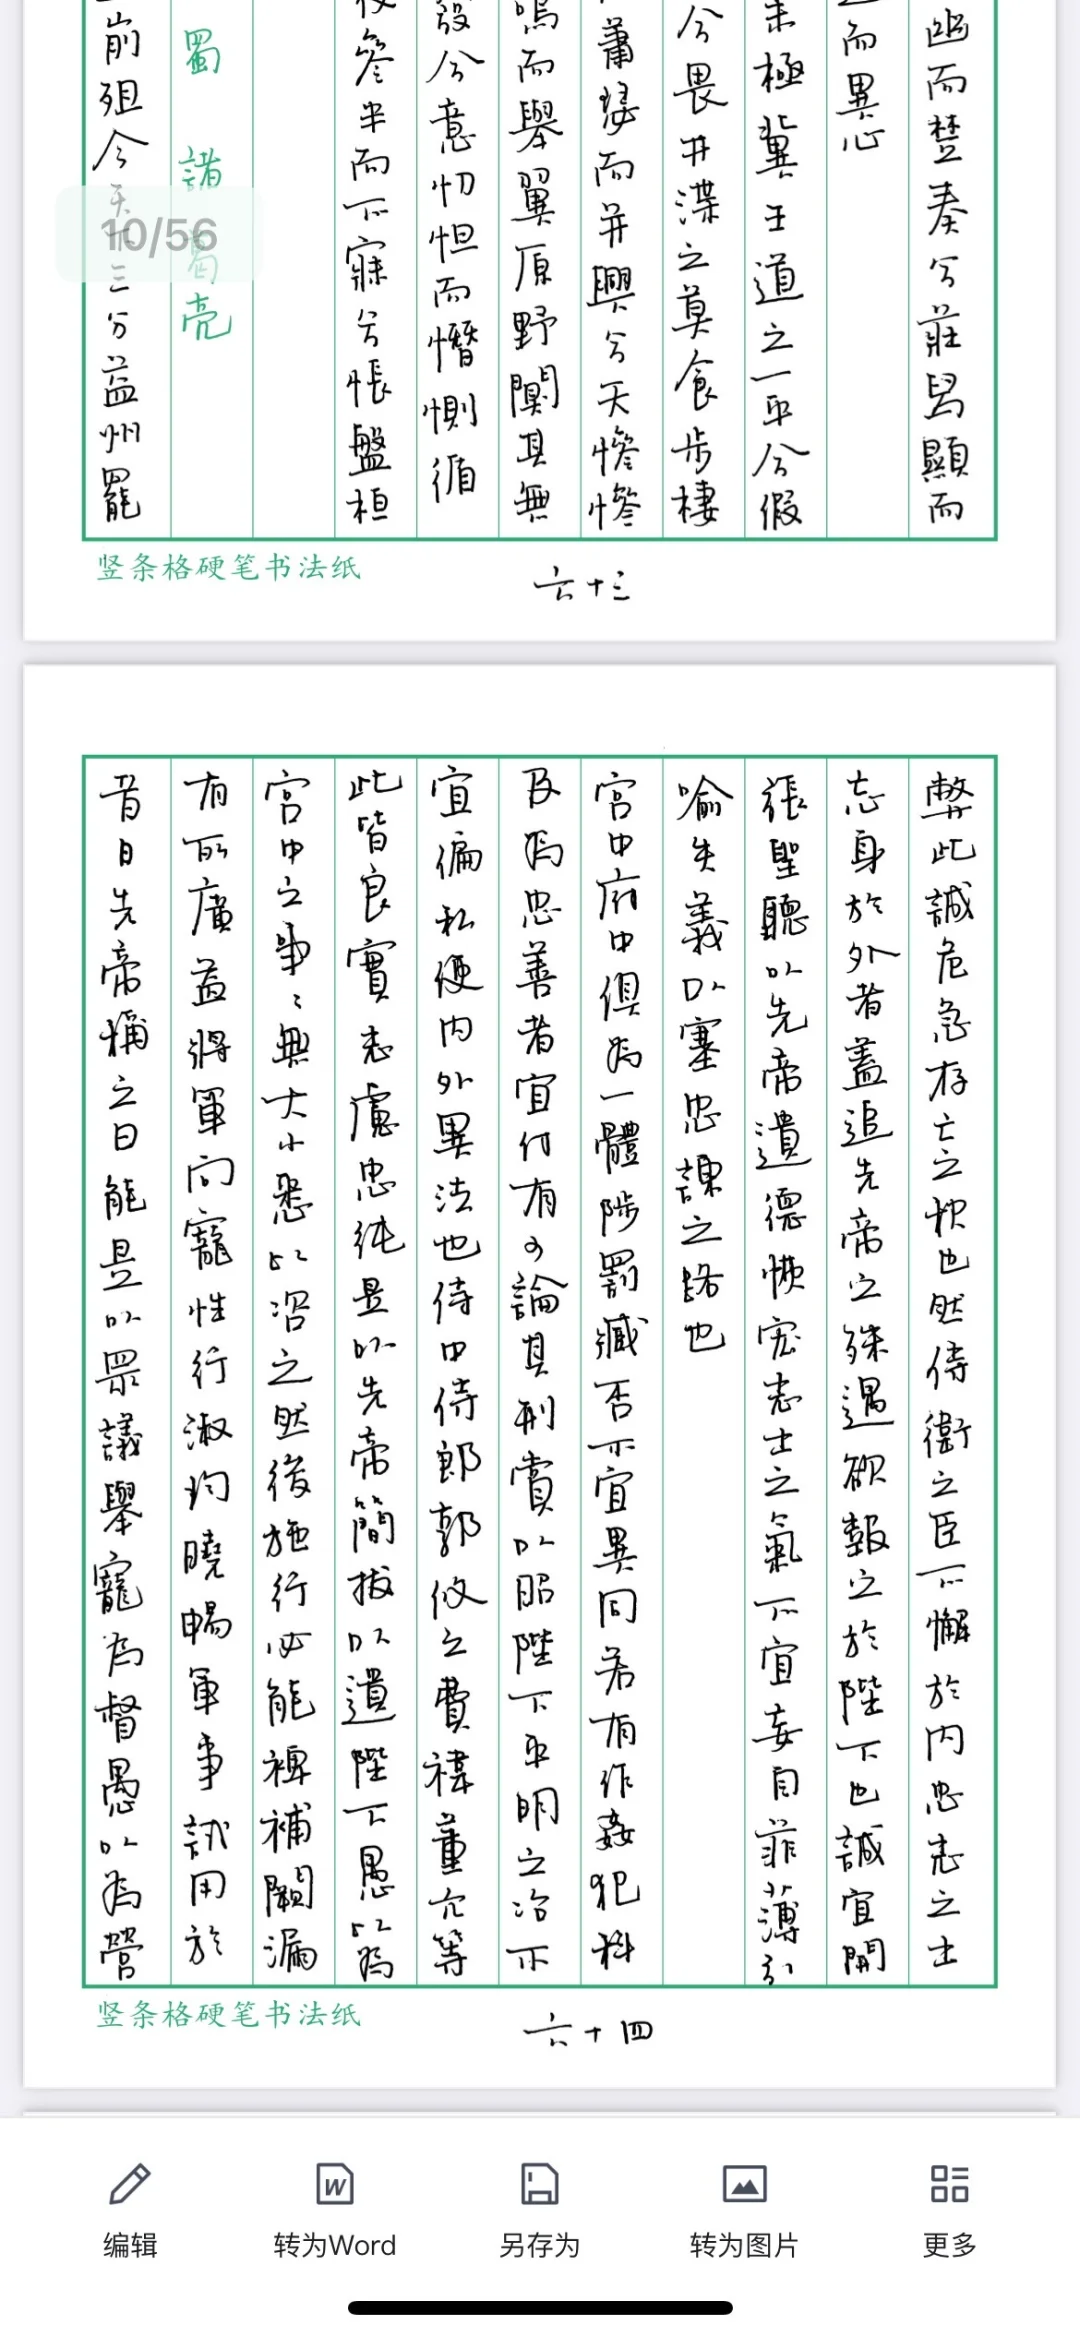 幽而楚奏兮莊舄顯而
而異心
未極冀王道之一平兮假
兮畏井渫之莫食步棲
蕭瑟而并興兮天慘慘
鳴而舉翼原野闃其無
發兮意忉怛而憯惻循
夜參半而不寐兮悵盤桓
蜀 諸葛亮
崩殂今天下三分益州罷
10/56
竖条格硬笔书法纸
六十三
弊此誠危急存亡之秋也然侍衛之臣不懈於內忠志之士
忘身於外者蓋追先帝之殊遇欲報之於陛下也誠宜開
張聖聽以先帝遺德恢宏志士之氣不宜妄自菲薄引
喻失義以塞忠諫之路也
宮中府中俱為一體陟罰臧否不宜異同若有作姦犯科
及為忠善者宜付有司論其刑賞以昭陛下平明之治不
宜偏私使內外異法也侍中侍郎郭攸之費禕董允等
此皆良實志慮忠純是以先帝簡拔以遺陛下愚以為
宮中之事〻無大小悉以咨之然後施行必能裨補闕漏
有所廣益將軍向寵性行淑均曉暢軍事試用於
昔日先帝稱之曰能是以眾議舉寵為督愚以為營
竖条格硬笔书法纸
六十四
编辑
转为Word
另存为
转为图片
更多